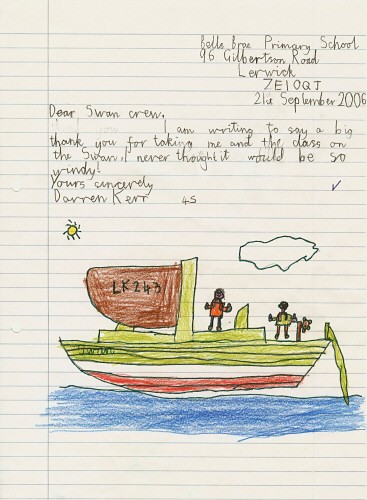 Bells Brae Primary School
96 Gilbertson Road
Lerwick
ZE1 0QJ
21st September 2006
Dear Swan crew,
I am writing to say a big
thank you for taking me and the class on
the Swan. I never thought it would be so
windy!
Yours sincerely
Darren Kerr 4S
LK243